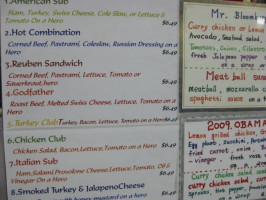 1.American Sub
Ham, Turkey, Swiss Cheese, Cole Slaw, or Lettuce &
Tomato On a Hero $6.49
2.Hot Combination
Corned Beef, Pastrami, Coleslaw, Russian Dressing on a
Hero $6.49
3.Reuben Sandwich
Corned Beef, Pastrami, Lettuce, Tomato or
Sauerkraut, hero $6.49
4.Godfather
Roast Beef, Melted Swiss Cheese, Lettuce, Tomato on a
Hero $6.49
5.Turkey Club Turkey, Bacon, Lettuce, Tomato on a Hero
$6.49
6.Chicken Club
Chicken Salad, Bacon, Lettuce, Tomato on a Hero
7.Italian Sub $6.49
Ham, Salami, Provolone Cheese, Lettuce, Tomato, Oil &
Vinegar On a Hero $6.49
8.Smoked Turkey & JalapenoCheese
honey mustard on a hero $6.49
Mr. Bloomb
Curry chicken or
Avocado, Seafood salad,
Tomatoes, Onions,
Fresh Jalapeno pepper
on a
Meat ball
Meat ball, mozzarella c
spaghetti sauce on a
2009 OBAMA
Lemon grilled chicken,
Egg plant, Zucchini,
- fresh
vinegar
curry chicken salad
curry chicken salad,